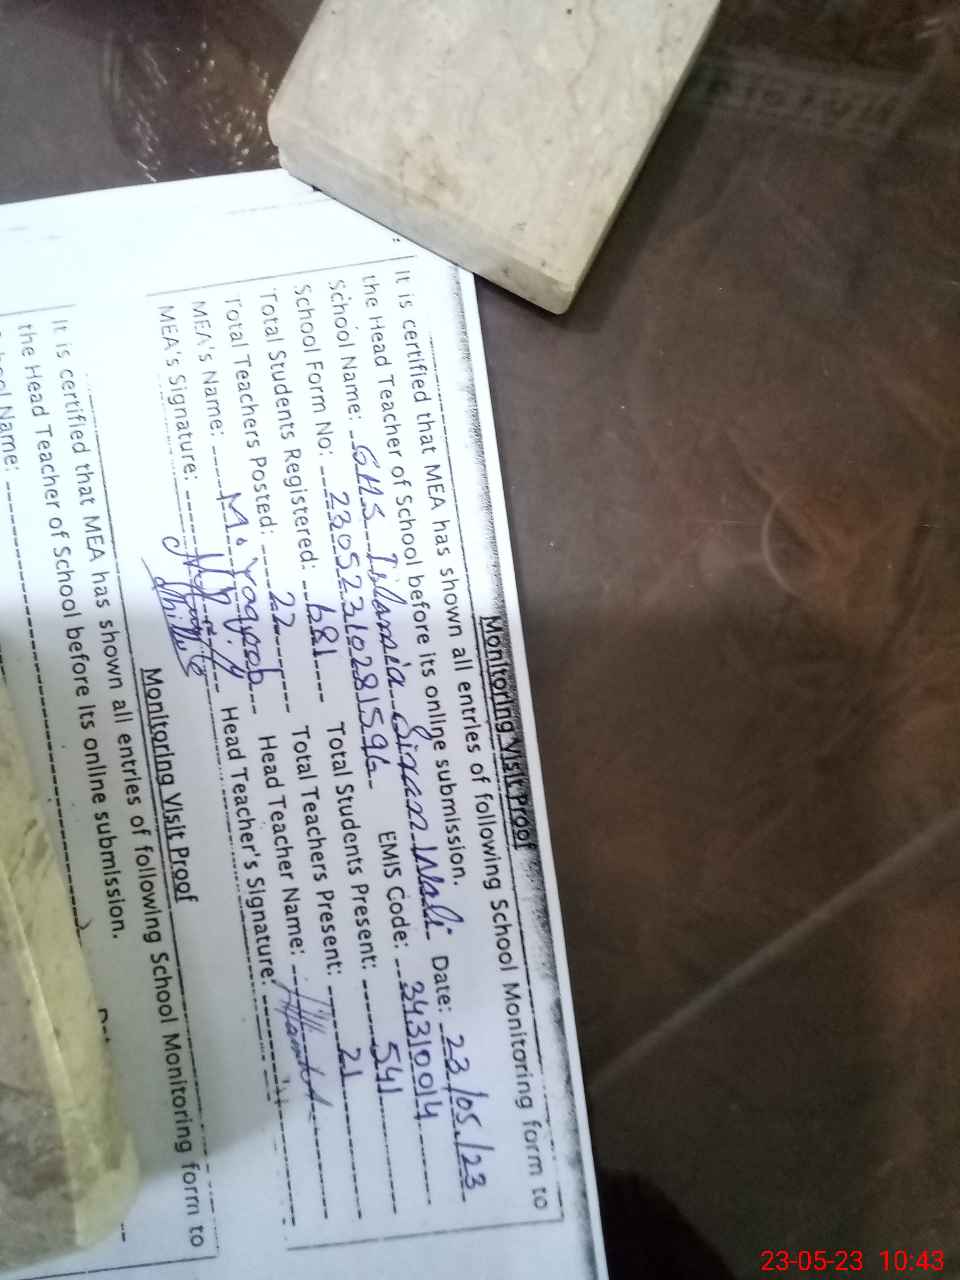 Monitoring Visit Proof
It is certified that MEA has shown all entries of following School Monitoring form to
the Head Teacher of School before its online submission.
School Name: GHS Islamia Giran Wali Date: 23/05/23
School Form No: 23052310281596 EMIS Code: 34310014
Total Students Registered: 681 Total Students Present: 541
Total Teachers Posted: 22 Total Teachers Present: 21
MEA's Name: M. Yaqoob Head Teacher Name:
MEA's Signature: Head Teacher's Signature:
Monitoring Visit Proof
It is certified that MEA has shown all entries of following School Monitoring form to
the Head Teacher of School before its online submission.
Name:
23-05-23 10:43